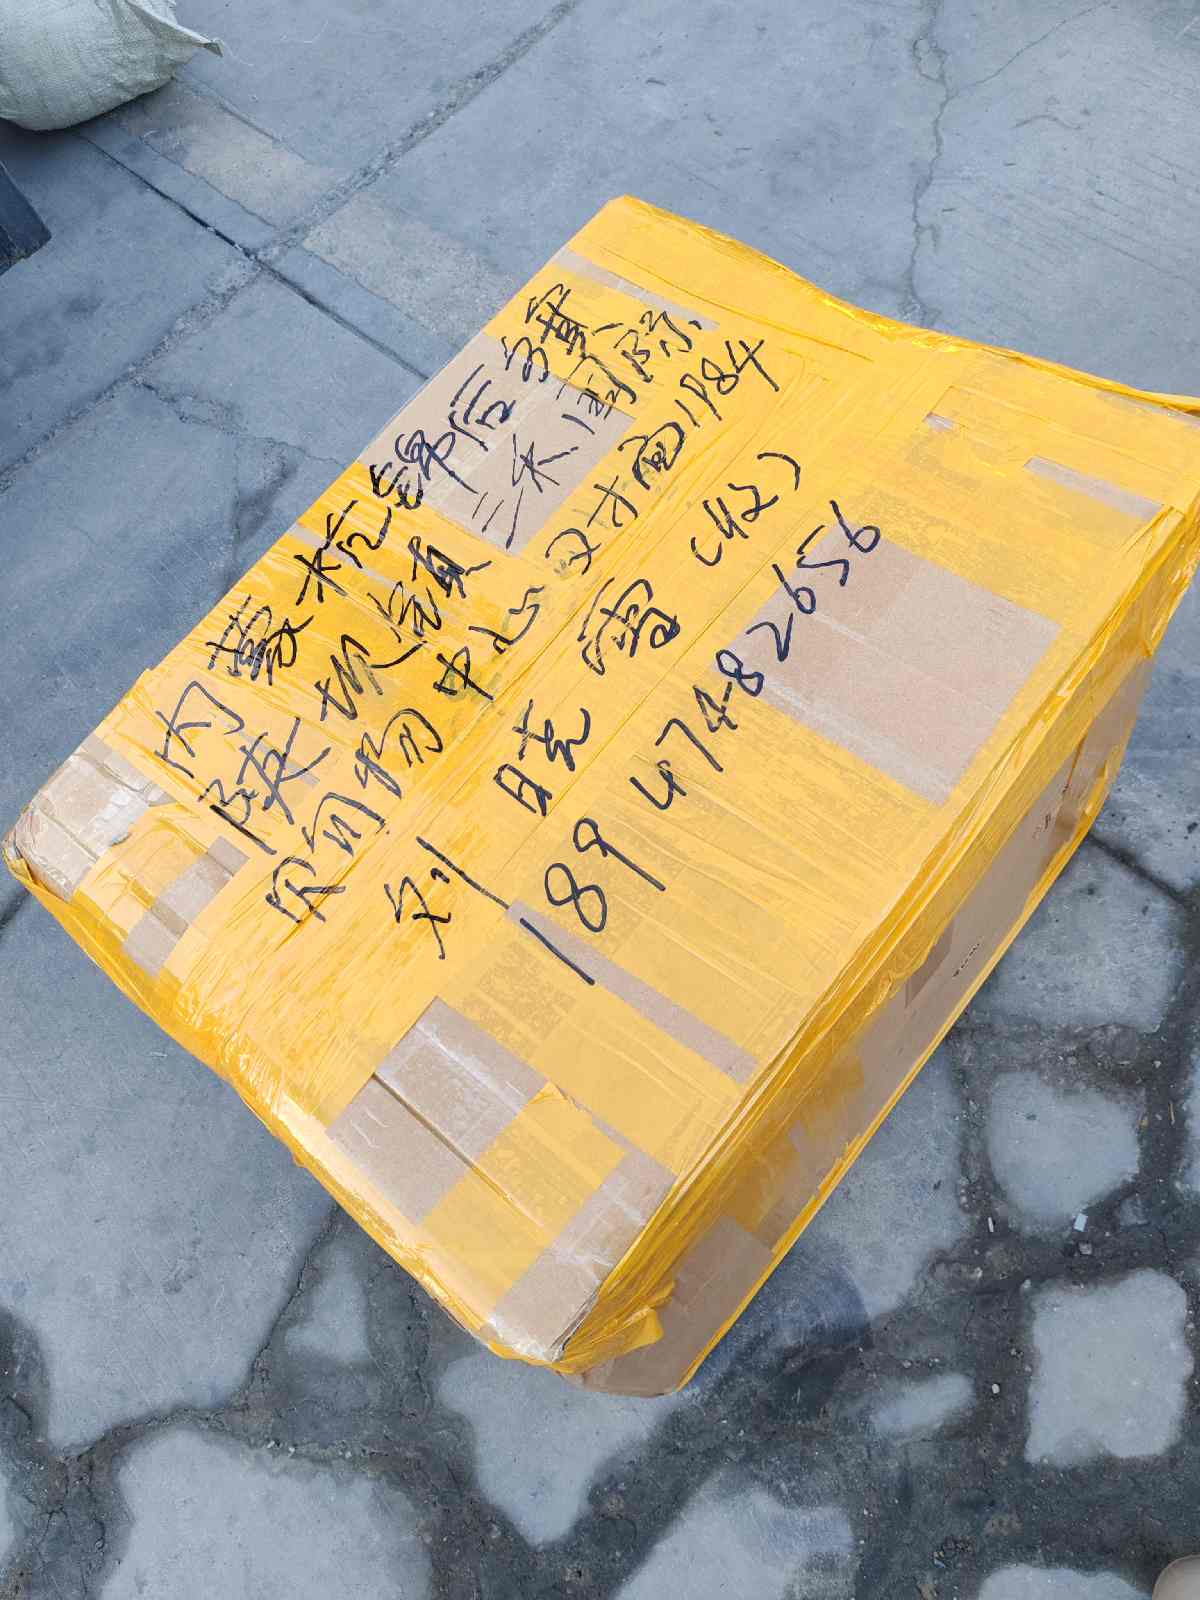 内蒙杭锦后旗
陕坝镇 三禾国际
物中心对面1184
刘晓雷 (42)
189 474-82656